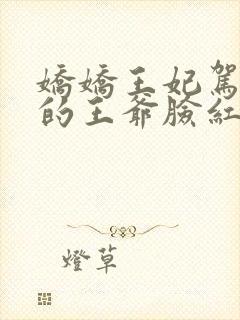 嬌嬌王妃駕
的王爺臉紅
燈草